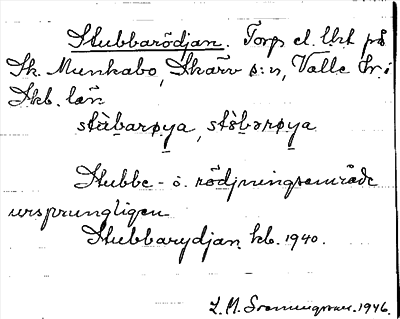 Stubbarödjan. Torp el. lht på
Sk. Munkabo, Skärv s:n, Valle hr i
Skb. län
stàbarøya, stòbərøya
Stubbe- o. rödjningsområde
ursprungligen
Stubbarydjan kb. 1940.
1946.